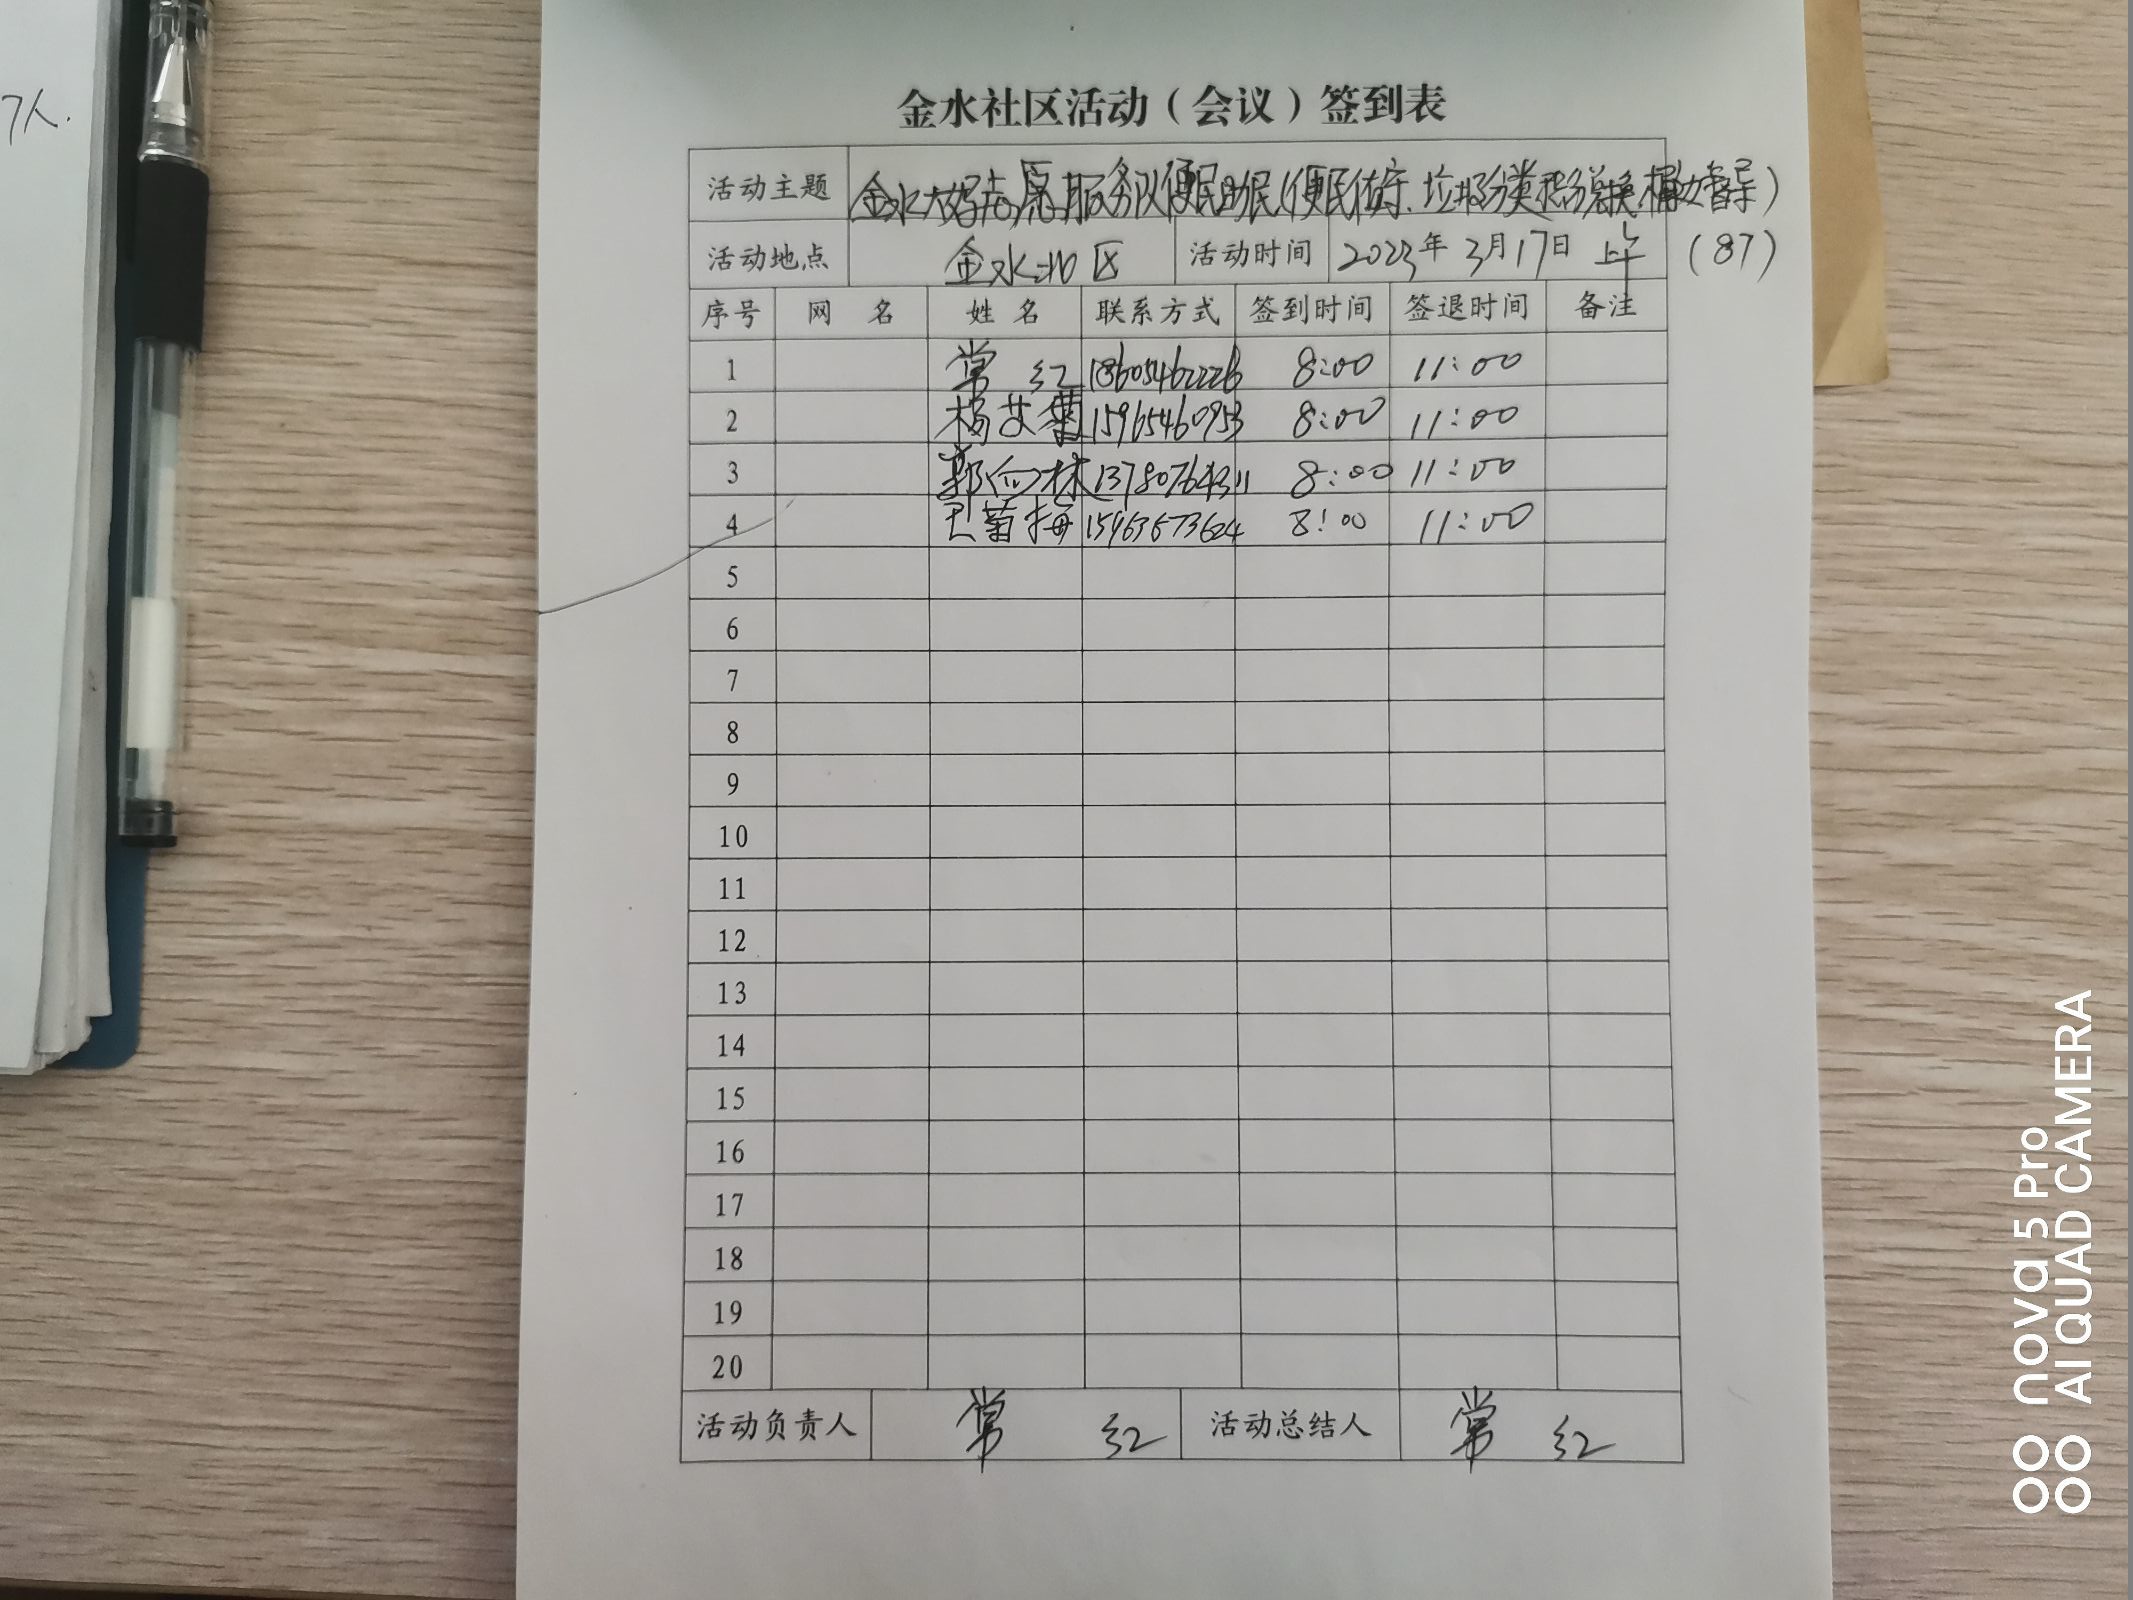 7人.
金水社区活动（会议）签到表
活动主题 金水大嫂志愿服务队便民助民(便民值守、垃圾分类积分兑换桶边督导)
活动地点 金水社区 活动时间 2023年3月17日 上午 (87)
序号 网 名 姓 名 联系方式 签到时间 签退时间 备注
1 常 红 18605462226 8:00 11:00
2 杨艾菊 15965460953 8:00 11:00
3 郭向林 13780764311 8:00 11:00
4 菊梅 15963673624 8:00 11:00
5
6
7
8
9
10
11
12
13
14
15
16
17
18
19
20
活动负责人 常 红 活动总结人 常 红
nova 5 Pro
AI QUAD CAMERA